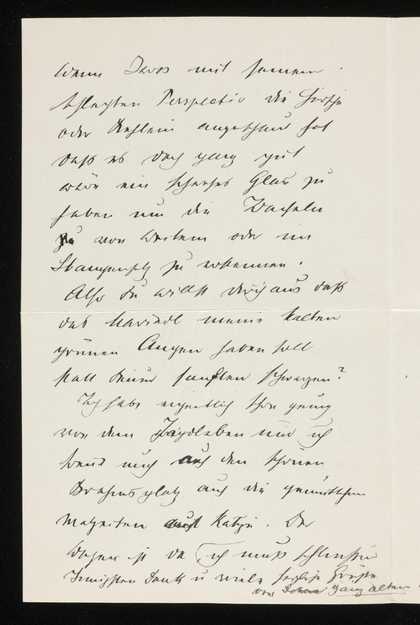 wenn Davos mit seinem
schlechten Perspectiv die Hirsche
oder Rehlein angeschaut hat
daß es doch ganz gut
wäre ein scharfes Glas zu
haben um die
zu von Weitem oder im
Stangenholz zu erkennen.
Also du willst durchaus daß
das Mariedl meine kalten
grünen Augen haben soll
statt deine sanften schwarzen?
Ich habe eigentlich schon genug
von dem Jagdleben und ich
freue mich auf den schönen
auf die gemüthlichen
Malzeiten Katzi. Der
Wagen ist da ich muß schließen
Innigsten Dank u viele herzliche Grüße
von ganz alten